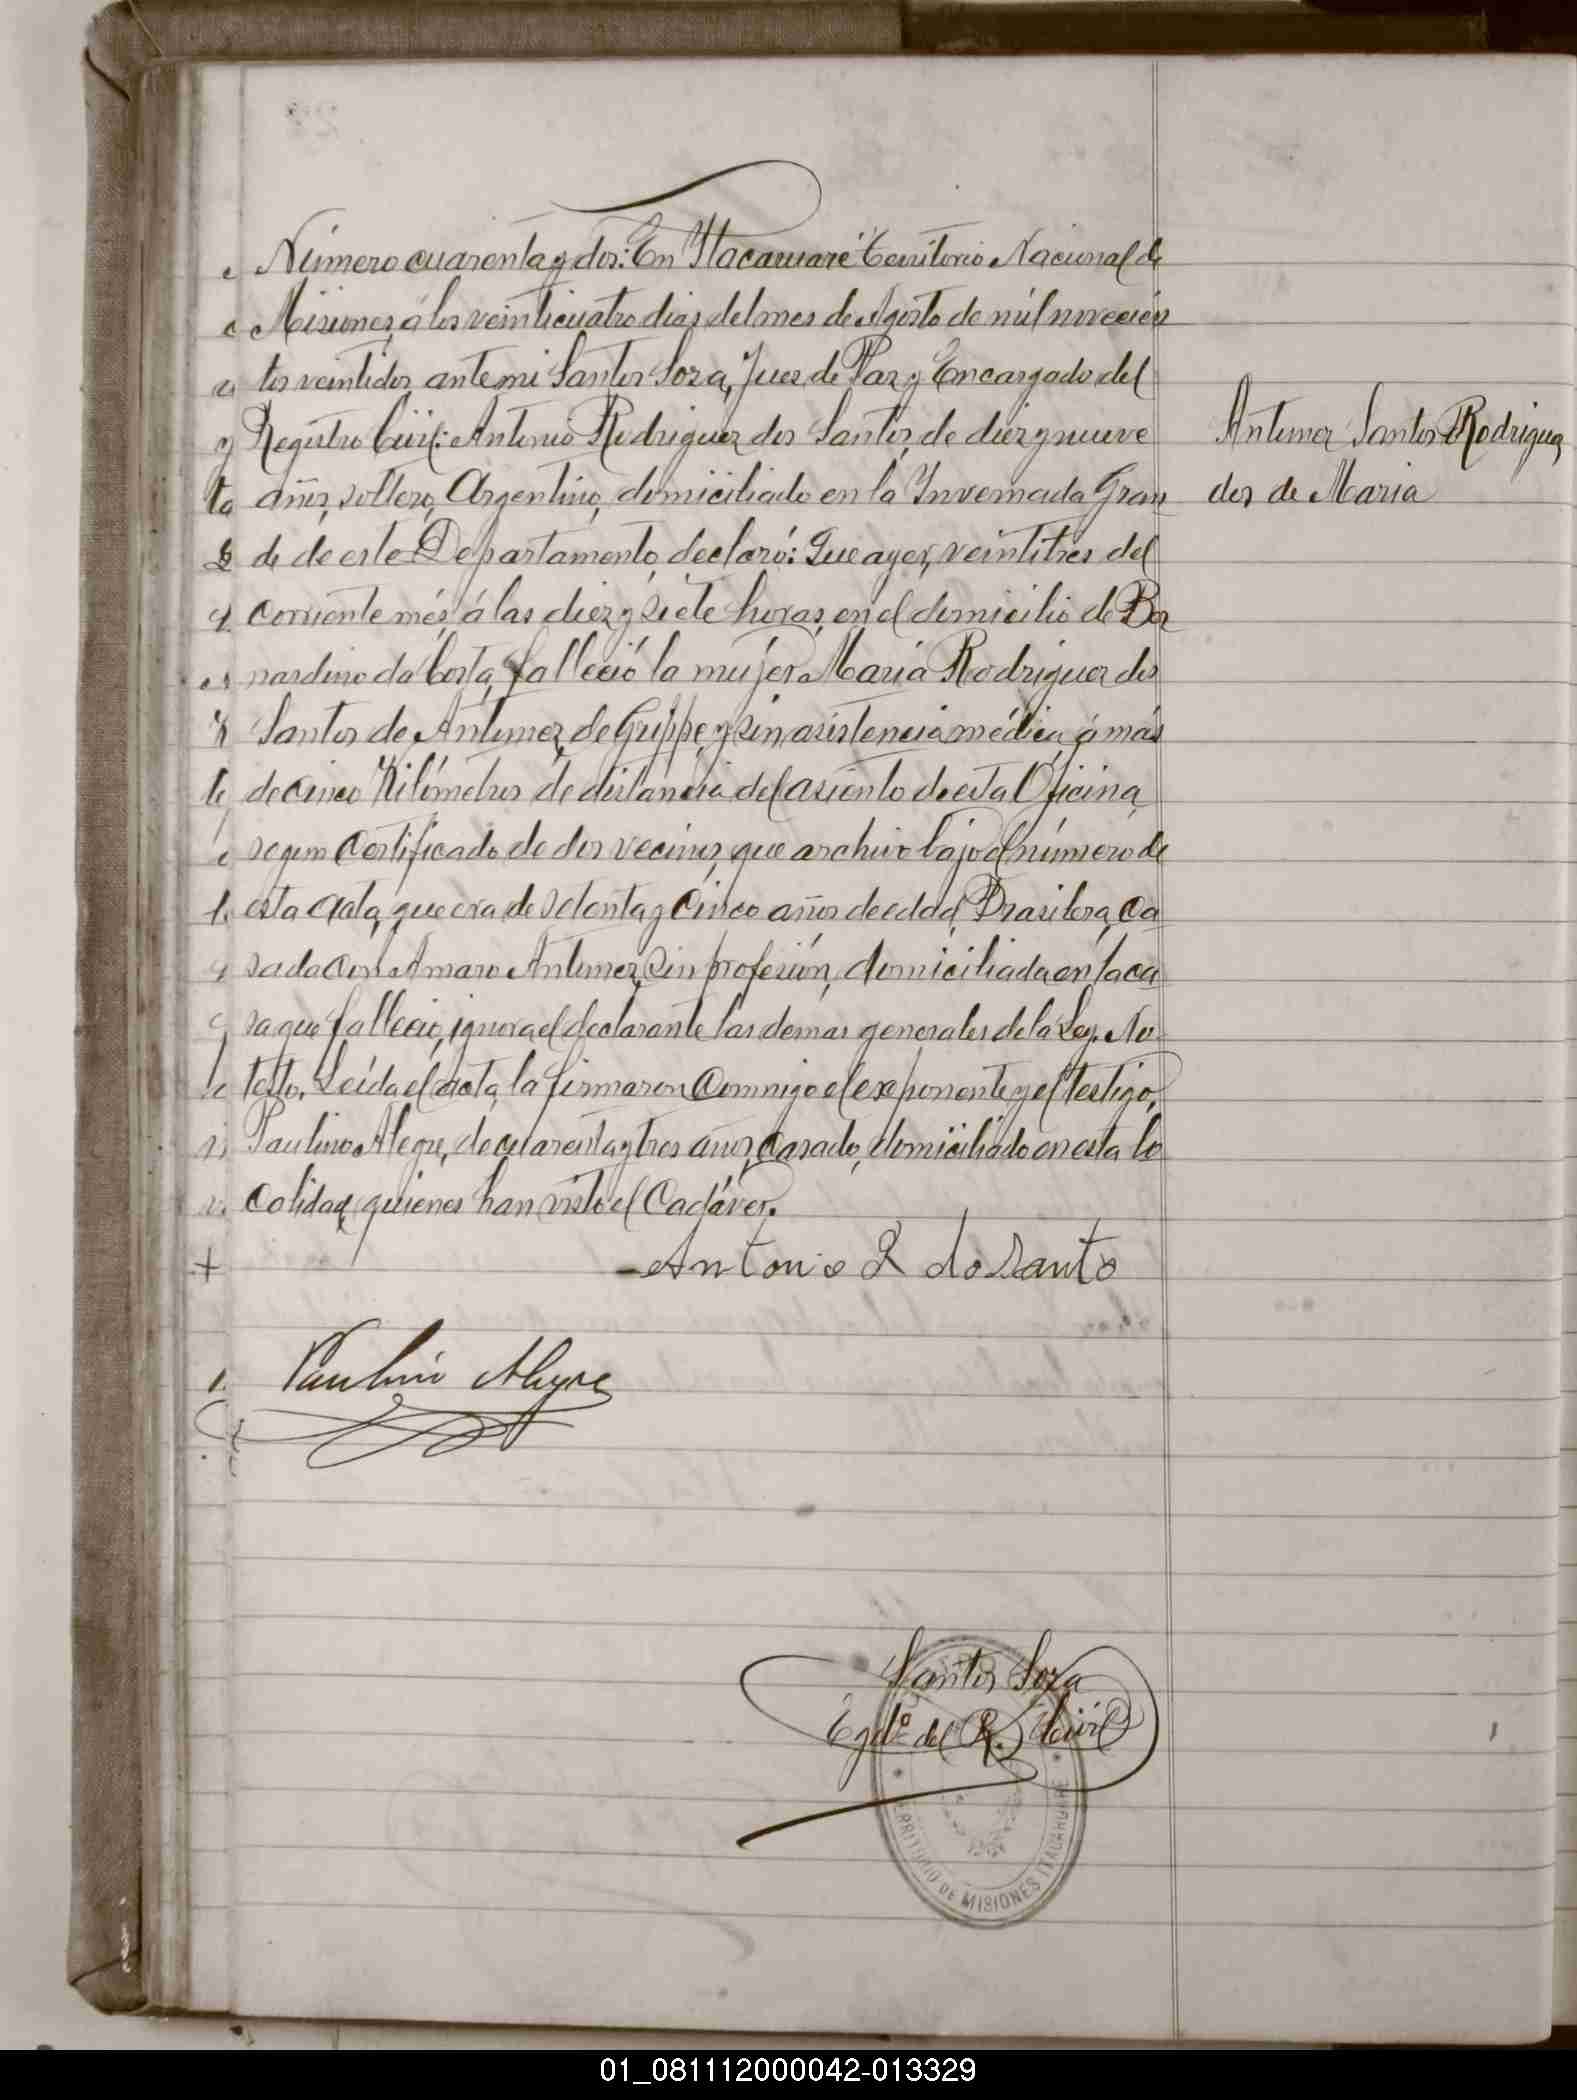 Número cuarenta y dos: En Itacaruaré Territorio Nacional de
Misiones, á los veinticuatro dias del mes de Agosto de mil novecien
tos veintidos ante mi Santos Soza, Juez de Paz y Encargado del
Registro Civil: Antonio Rodriguez dos Santos, de diez y nueve
Antunez Santos Rodriguez
años, soltero, Argentino, domiciliado en la Invernada Gran
dos de Maria
de de este Departamento, declaró: Que ayer, veintitres del
corriente més, á las diez y siete horas, en el domicilio de Ber
nardino da Costa, falleció la mujer Maria Rodriguez dos
Santos de Antunez, de Grippe, y sin asistencia médica, á más
de cinco Kilómetros de distancia del asiento de esta Oficina,
segun Certificado de dos vecinos, que archivo bajo el número de
esta acta, que era de setenta y cinco años de edad, Brasilera, ca
sada con Amaro Antunez, sin profesión, domiciliada en la ca
sa que falleció, ignora el declarante las demas generales de la Ley. No
testo. Leída el acta, la firmaron conmigo el exponente y el testigo,
Paulino Alegre, de cuarenta y tres años, Casado, domiciliado en esta lo
calidad, quienes han visto el Cadáver.
Antonio R do Santo
Paulino Alegre
Santos Soza
Egdo del R. Civil
TERRITORIO DE MISIONES ITACARUARE
01_081112000042-013329